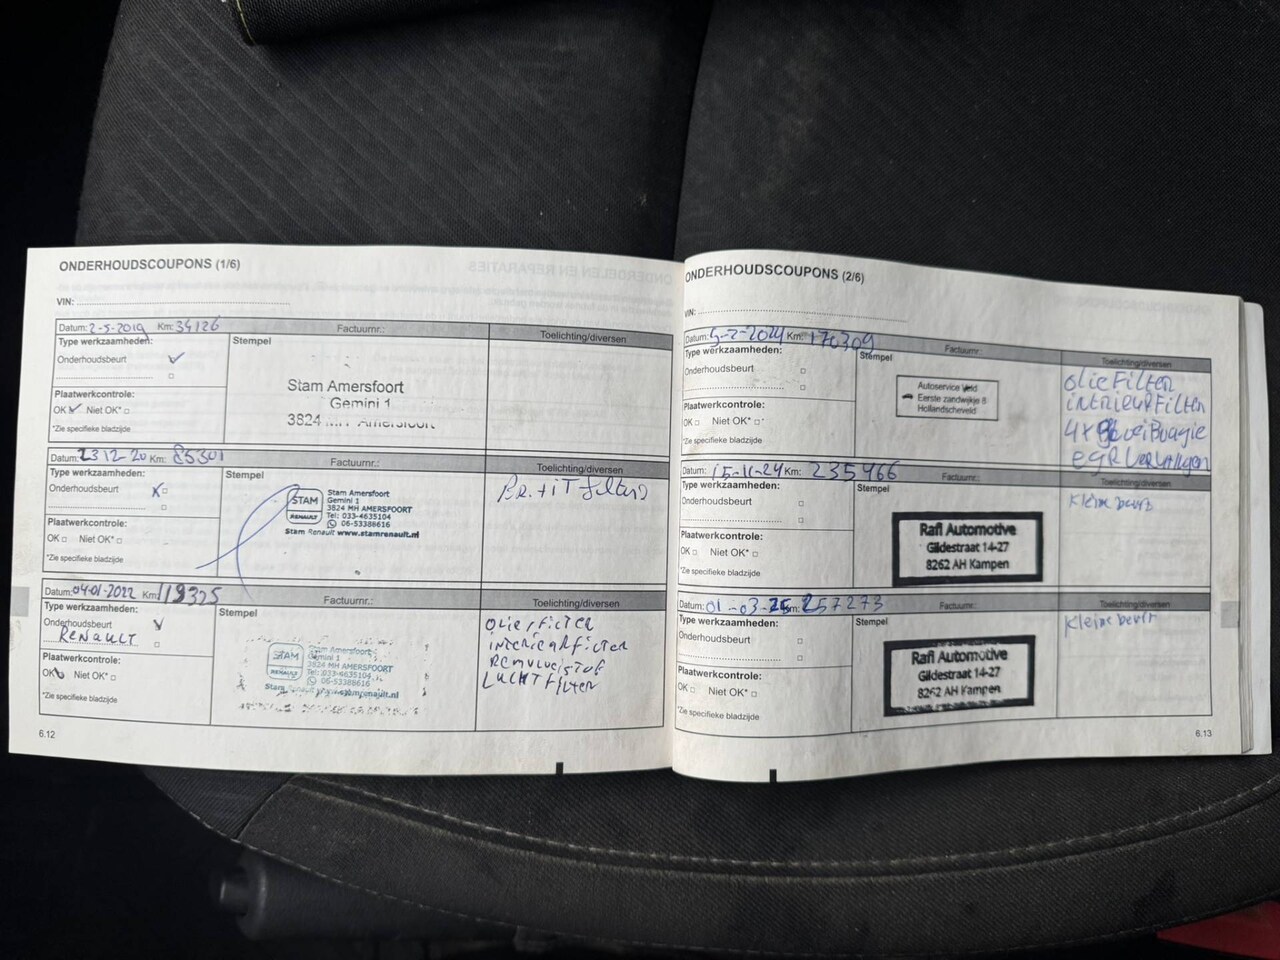 ONDERHOUDSCOUPONS (1/6)
VIN:
Datum: 2-5-2019 Km: 34126 Factuurnr.: Toelichting/diversen
Type werkzaamheden: Stempel
Onderhoudsbeurt
Stam Amersfoort
Gemini 1
3824 MH Amersfoort
Plaatwerkcontrole:
OK Niet OK*
*Zie specifieke bladzijde
Datum: 23 12-20 Km: 85301 Factuurnr.: Toelichting/diversen
Type werkzaamheden: Stempel
Onderhoudsbeurt
STAM
RENAULT
Stam Amersfoort
Gemini 1
3824 MH AMERSFOORT
Tel: 033-4635104
06-53388616
Stam Renault www.stamrenault.nl
Plaatwerkcontrole:
OK Niet OK*
*Zie specifieke bladzijde
Datum: 04-01-2022 Km: Factuurnr.: Toelichting/diversen
Type werkzaamheden: Stempel
Onderhoudsbeurt
RENAULT
STAM
RENAULT
Stam Amersfoort
Gemini 1
3824 MH AMERSFOORT
Tel: 033-4635104
06-53388616
OLIE/FILTER
INTERIEURFILTER
REMVLOEISTOF
LUCHTFILTER
Plaatwerkcontrole:
OK Niet OK*
*Zie specifieke bladzijde
6.12
ONDERHOUDSCOUPONS (2/6)
VIN:
Datum: 5-2-2024 Km: 170309 Factuurnr.: Toelichting/diversen
Type werkzaamheden: Stempel
Onderhoudsbeurt
Autoservice
Eerste zandwijkje 8
Hollandscheveld
olie Filter
intrieur Filter
4x Bougie
EGR
Plaatwerkcontrole:
OK Niet OK*
*Zie specifieke bladzijde
Datum: 15-11-24 Km: 235966 Factuurnr.: Toelichting/diversen
Type werkzaamheden: Stempel
Onderhoudsbeurt
Rafi Automotive
Gildestraat 14-27
8262 AH Kampen
Kleine beurt
Plaatwerkcontrole:
OK Niet OK*
*Zie specifieke bladzijde
Datum: 01-03-25 Km: 257273 Factuurnr.: Toelichting/diversen
Type werkzaamheden: Stempel
Onderhoudsbeurt
Rafi Automotive
Gildestraat 14-27
8262 AH Kampen
Kleine beurt
Plaatwerkcontrole:
OK Niet OK*
*Zie specifieke bladzijde
6.13